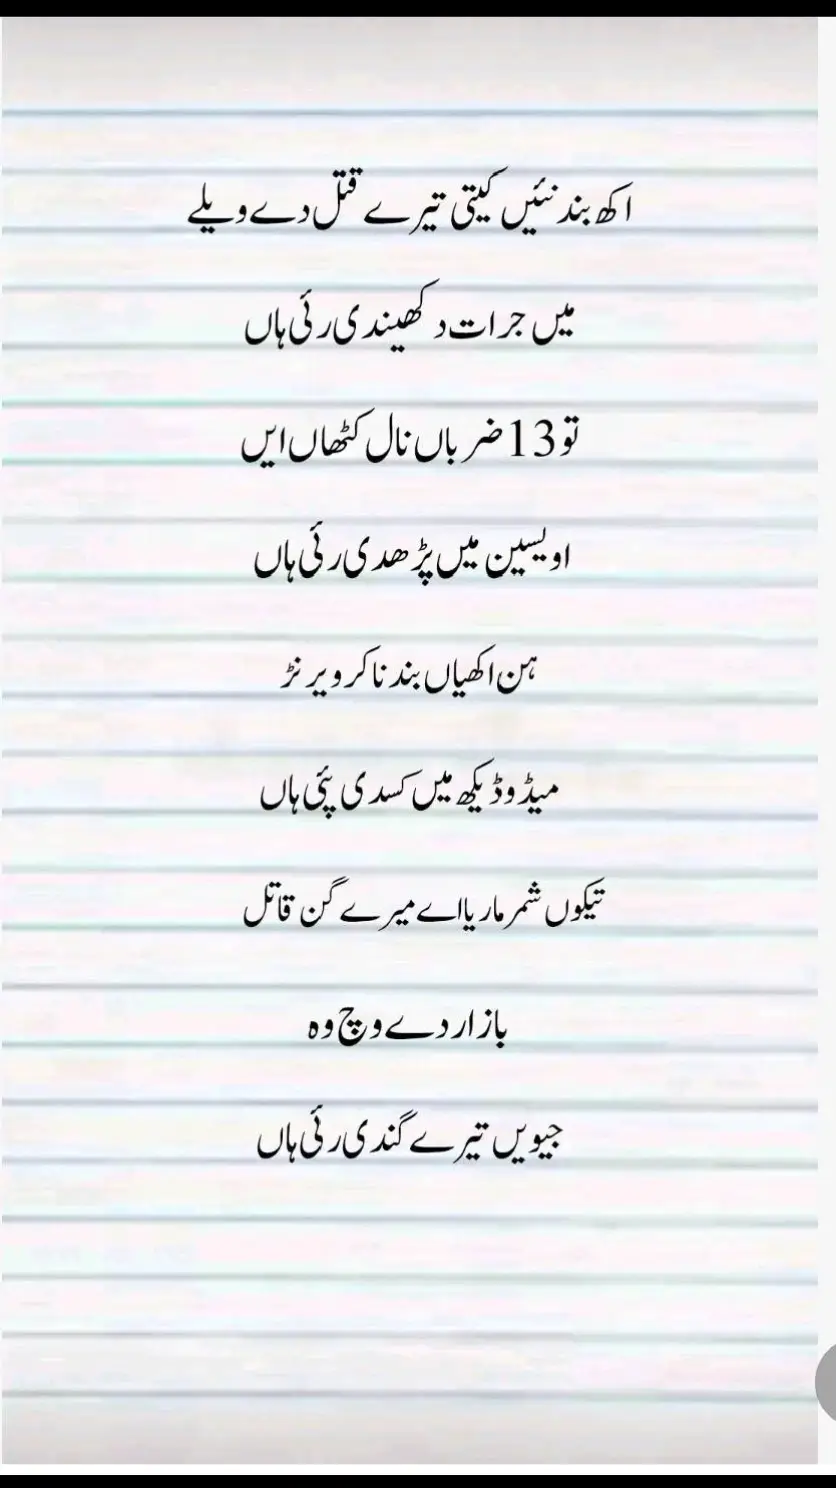 اکھ بند نئیں کیتی تیرے قتل دے ویلے
میں جرات دکھیندی رئی ہاں
تو 13 ضرباں نال کٹھاں ایں
او یسین میں پڑھدی رئی ہاں
ہن اکھیاں بند نا کر ویرنڑ
میڈو ڈیکھ میں کسدی پئی ہاں
تیکوں شمر ماریا اے میرے گن قاتل
بازار دے وچ وہ
جیویں تیرے گندی رئی ہاں